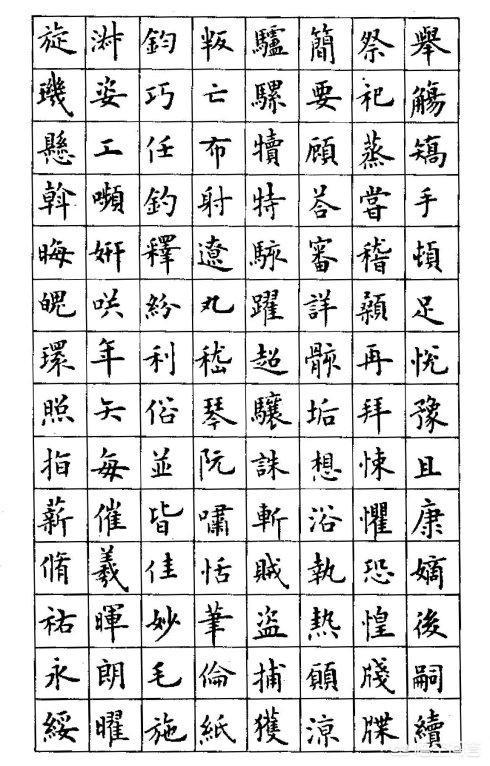 舉觴矯手頓足悅豫且康嫡後嗣續
祭祀蒸嘗稽顙再拜悚懼恐惶牋牒
簡要顧答審詳骸垢想浴執熱願涼
驢騾犢特駭躍超驤誅斬賊盜捕獲
叛亡布射遼丸嵇琴阮嘯恬筆倫紙
鈞巧任釣釋紛利俗並皆佳妙毛施
淑姿工嚬妍咲年矢每催羲暉朗曜
旋璣懸斡晦魄環照指薪脩祐永綏